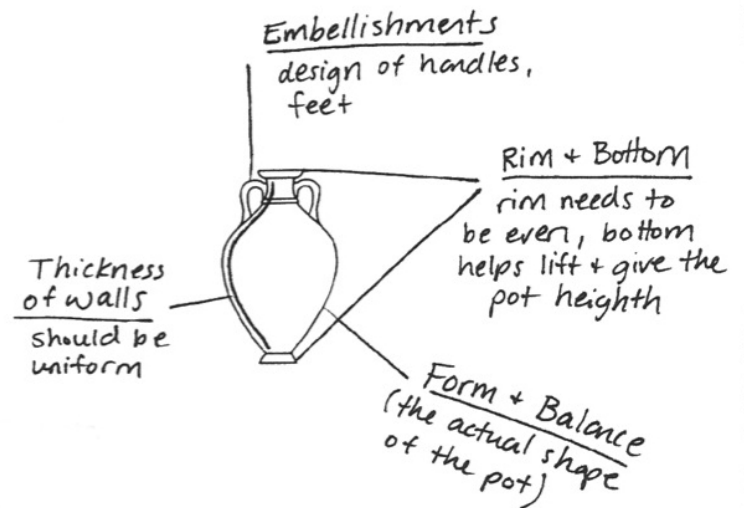 Embellishments
design of handles,
feet
Rim + Bottom
rim needs to
be even, bottom
helps lift + give the
pot heighth
Thickness
of walls
should be
uniform
Form + Balance
(the actual shape
of the pot)